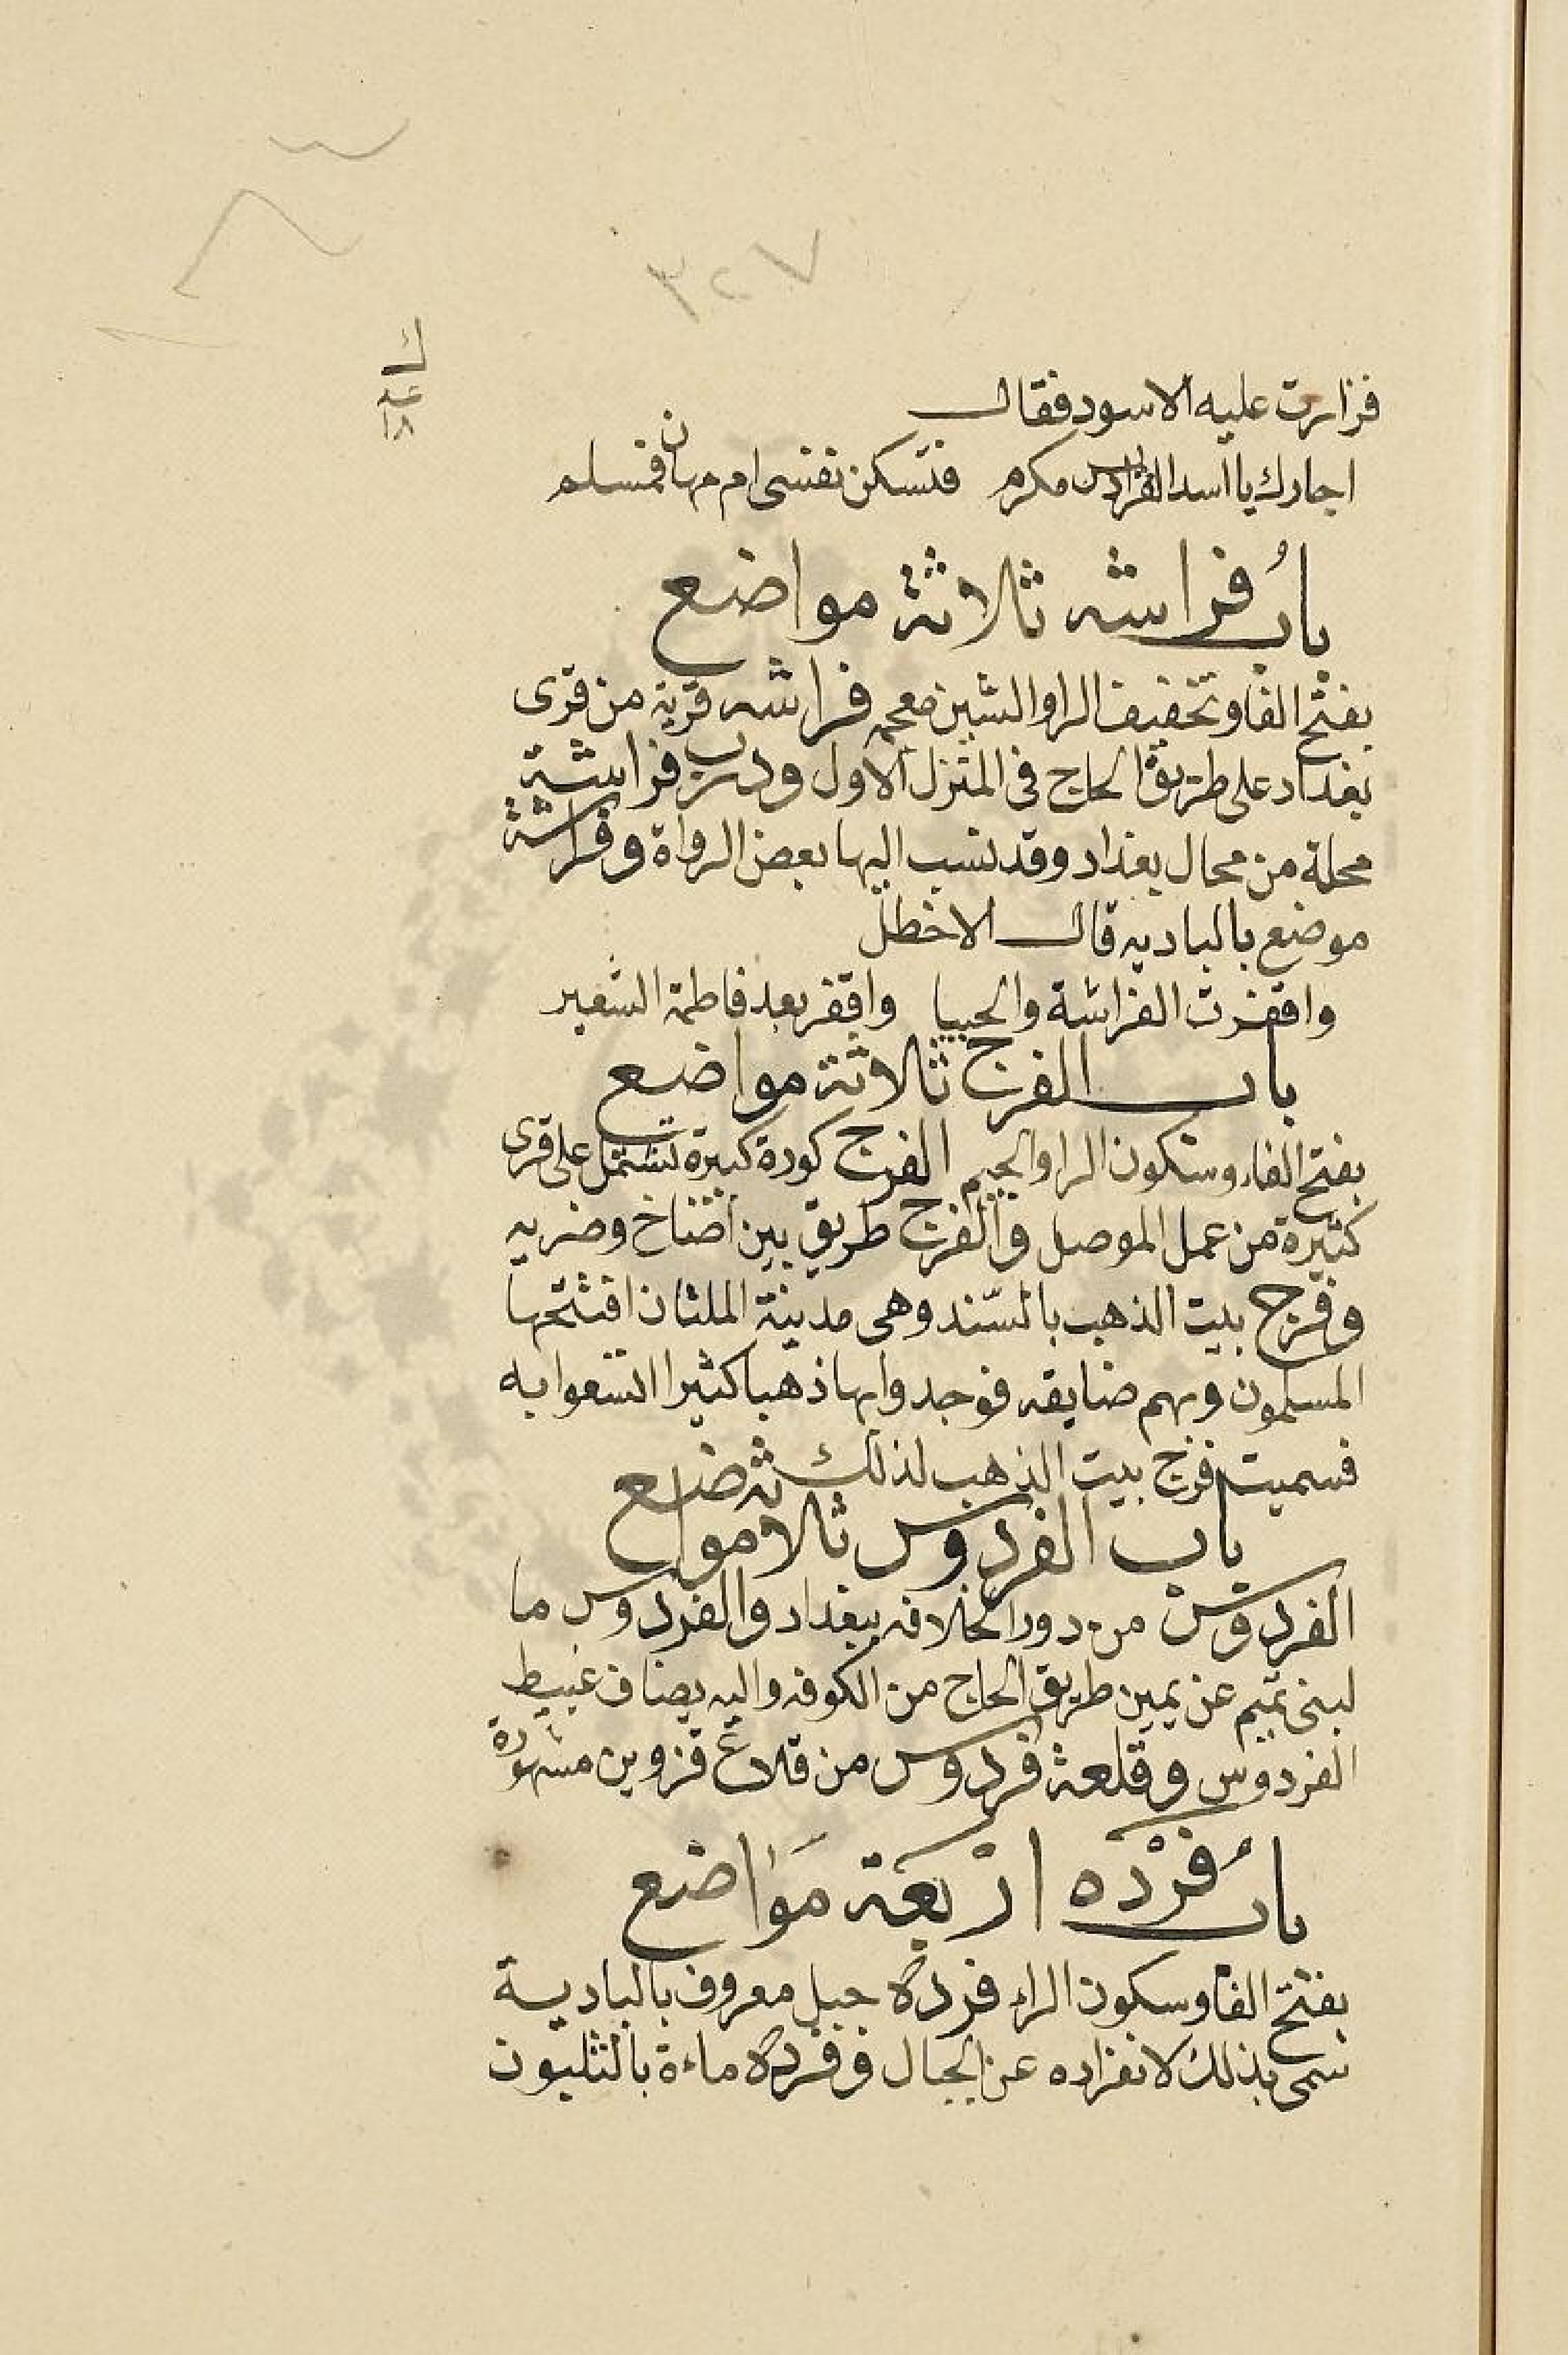 ٣٢٧
فزارت عليه الاسود فقال
اجارك يا اسد الفراديس مكرم فتسكن نفسى ام مهان فمسلم
بابُ فراشه ثلاثة مواضع
بفتح الفا وتخفيف الرا والشين معجمه فراشه قرية من قرى
بغداد على طريق الحاج فى المنزل الاول ودرب فراشة
محلة من محال بغداد وقد نسب اليها بعض الرواة وفراشة
موضع بالباديه قال الاخطل
واقفرت الفراشة والحبيا واقفر بعد فاطمة الشغير
باب الفرج ثلاثة مواضع
بفتح الفاء وسكون الرا والجيم الفرج كورة كبيرة تشتمل على قرى
كثيرة من عمل الموصل والفرج طريق بين اضاخ وضريه
وفرج بيت الذهب بالسّند وهى مدينة الملتان افتتحها
المسلمون وبهم ضايقه فوجدوا بها ذهبا كثيرا اتسعوا به
فسميت فرج بيت الذهب لذلك
باب الفردوس ثلاثة مواضع
الفردوس من دور الخلافه ببغداد والفردوس ما
لبنى تميم عن يمين طريق الحاج من الكوفه واليه يضاف غبيط
الفردوس وقلعة فردوس من قلاع قزوين مشهورة
بابُ فَرْدَه اربعة مَوَاضع
بفتح الفا وسكون الراء فردة جبل معروف بالبادية
سمى بذلك لانفراده عن الجبال وفردة ماءة بالثلبوت